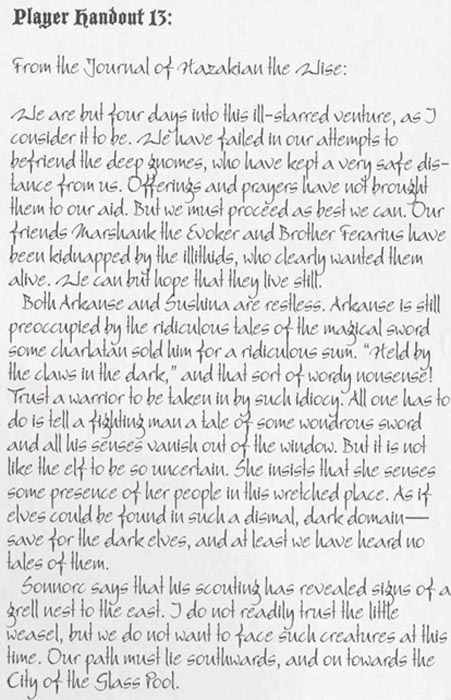 Player Handout 13:
From the Journal of Hazakian the Wise:
We are but four days into this ill-starred venture, as I
consider it to be. We have failed in our attempts to
befriend the deep gnomes, who have kept a very safe dis-
tance from us. Offerings and prayers have not brought
them to our aid. But we must proceed as best we can. Our
friends Marshank the Evoker and Brother Ferarius have
been kidnapped by the illithids, who clearly wanted them
alive. We can but hope that they live still.
Both Arkanse and Sushina are restless. Arkanse is still
preoccupied by the ridiculous tales of the magical sword
some charlatan sold him for a ridiculous sum. "Held by
the claws in the dark," and that sort of wordy nonsense!
Trust a warrior to be taken in by such idiocy. All one has to
do is tell a fighting man a tale of some wondrous sword
and all his senses vanish out of the window. But it is not
like the elf to be so uncertain. She insists that she senses
some presence of her people in this wretched place. As if
elves could be found in such a dismal, dark domain—
save for the dark elves, and at least we have heard no
tales of them.
Sonnorc says that his scouting has revealed signs of a
grell nest to the east. I do not readily trust the little
weasel, but we do not want to face such creatures at this
time. Our path must lie southwards, and on towards the
City of the Glass Pool.